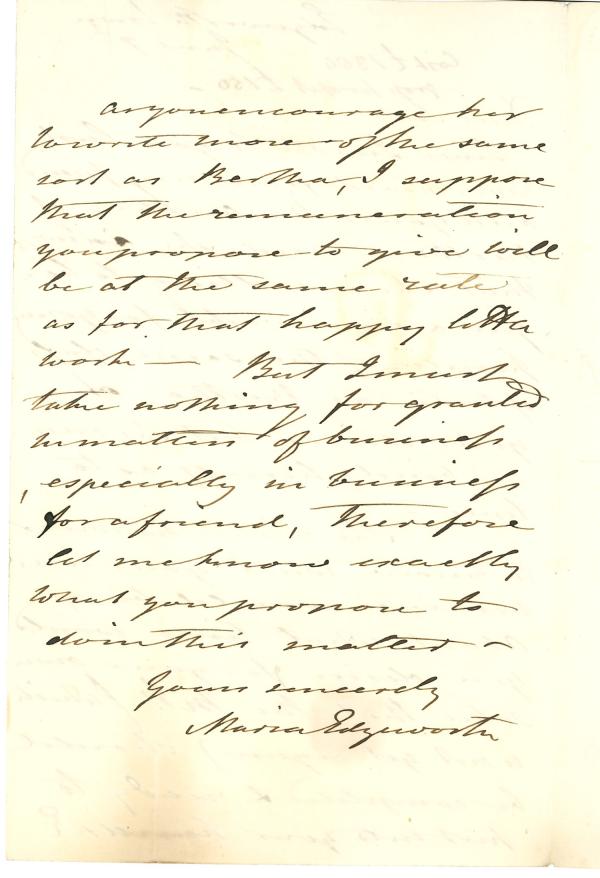 as you encourage her
to write more of the same
sort as Bertha, I suppose
that the remuneration
you propose to give will
be at the same rate
as for that happy little
work — But I must
take nothing for granted
in matters of business
, especially in business
for a friend, Therefore
let me know exactly
what you propose to
do in this matter —
Yours sincerely
Maria Edgeworth